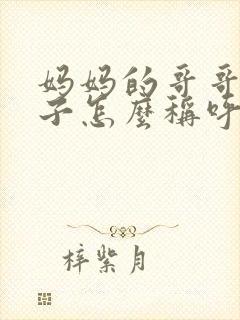 妈妈的哥哥
子怎麼稱呼
梓紫月